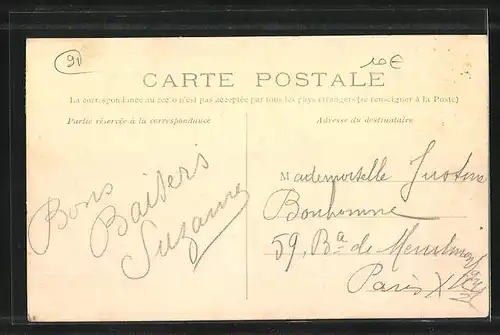 91
10€
CARTE POSTALE
La correspondance au recto n'est pas acceptée par tous les pays étrangers (se renseigner à la Poste)
Partie réservée à la correspondance
Adresse du destinataire
Bons
Baisers
Suzanne
Mademoiselle Justine
Bonhomme
59, Bd de Menilmontant
Paris